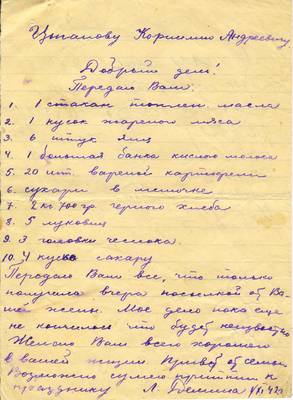 Цыганову Корнилию Андреевичу.
Добрый день!
Передаю Вам:
1. 1 стакан топлен. масла
2. 1 кусок жареного мяса
3. 6 штук яиц
4. 1 большая банка кислого молока
5. 20 шт. вареной картофели
6. сухари в мешочке
7. 2 кг 700 гр. черного хлеба
8. 5 луковиц
9. 3 головки чеснока.
10. 4 куска сахару
Передаю Вам все, что только
получила вчера посылкой от Ва-
шей жены. Мое дело пока еще
не кончилось что будет неизвестно
Желаю Вам всего хорошего
в вашей жизни Привет от семьи
Возможно сумею прийти к
празднику Л.